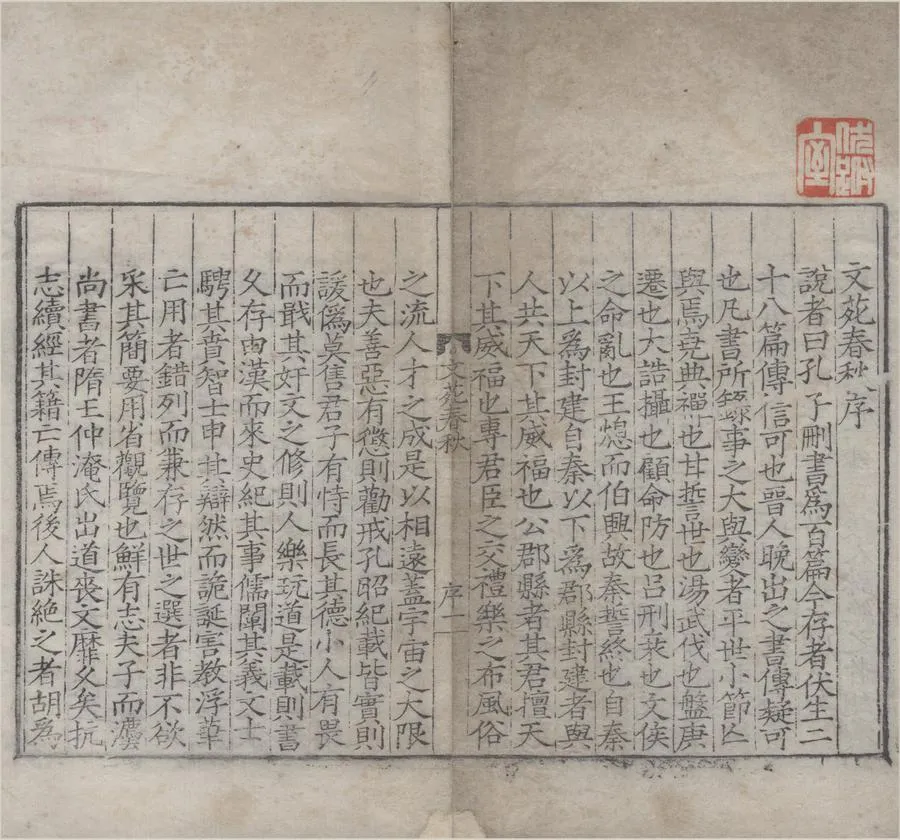 文苑春秋序
說者曰孔子刪書爲百篇今存者伏生二
十八篇傳信可也晉人晚出之書傳疑可
也凡書所錄事之大與變者平世小節亾
與焉堯典禪也甘誓世也湯武伐也盤庚
遷也大誥攝也顧命防也呂刑衰也文侯
之命亂也王熄而伯興故秦誓終也自秦
以上爲封建自秦以下爲郡縣封建者與
人共天下其威福也公郡縣者其君擅天
下其威福也專君臣之交禮樂之布風俗
文苑春秋 序 一
之流人才之成是以相遠蓋宇宙之大限
也夫善惡有懲則勸戒孔昭紀載皆實則
諼僞莫售君子有恃而長其德小人有畏
而戢其奸文之修則人樂玩道是載則書
久存由漢而來史紀其事儒闡其義文士
騁其賁智士申其辯然而詭誕害教浮華
亡用者錯列而兼存之世之選者非不欲
采其簡要用省觀覽也鮮有志夫子而遷
尚書者隋王仲淹氏出道喪文靡久矣抗
志續經其籍亡傳焉後人誅絶之者胡爲